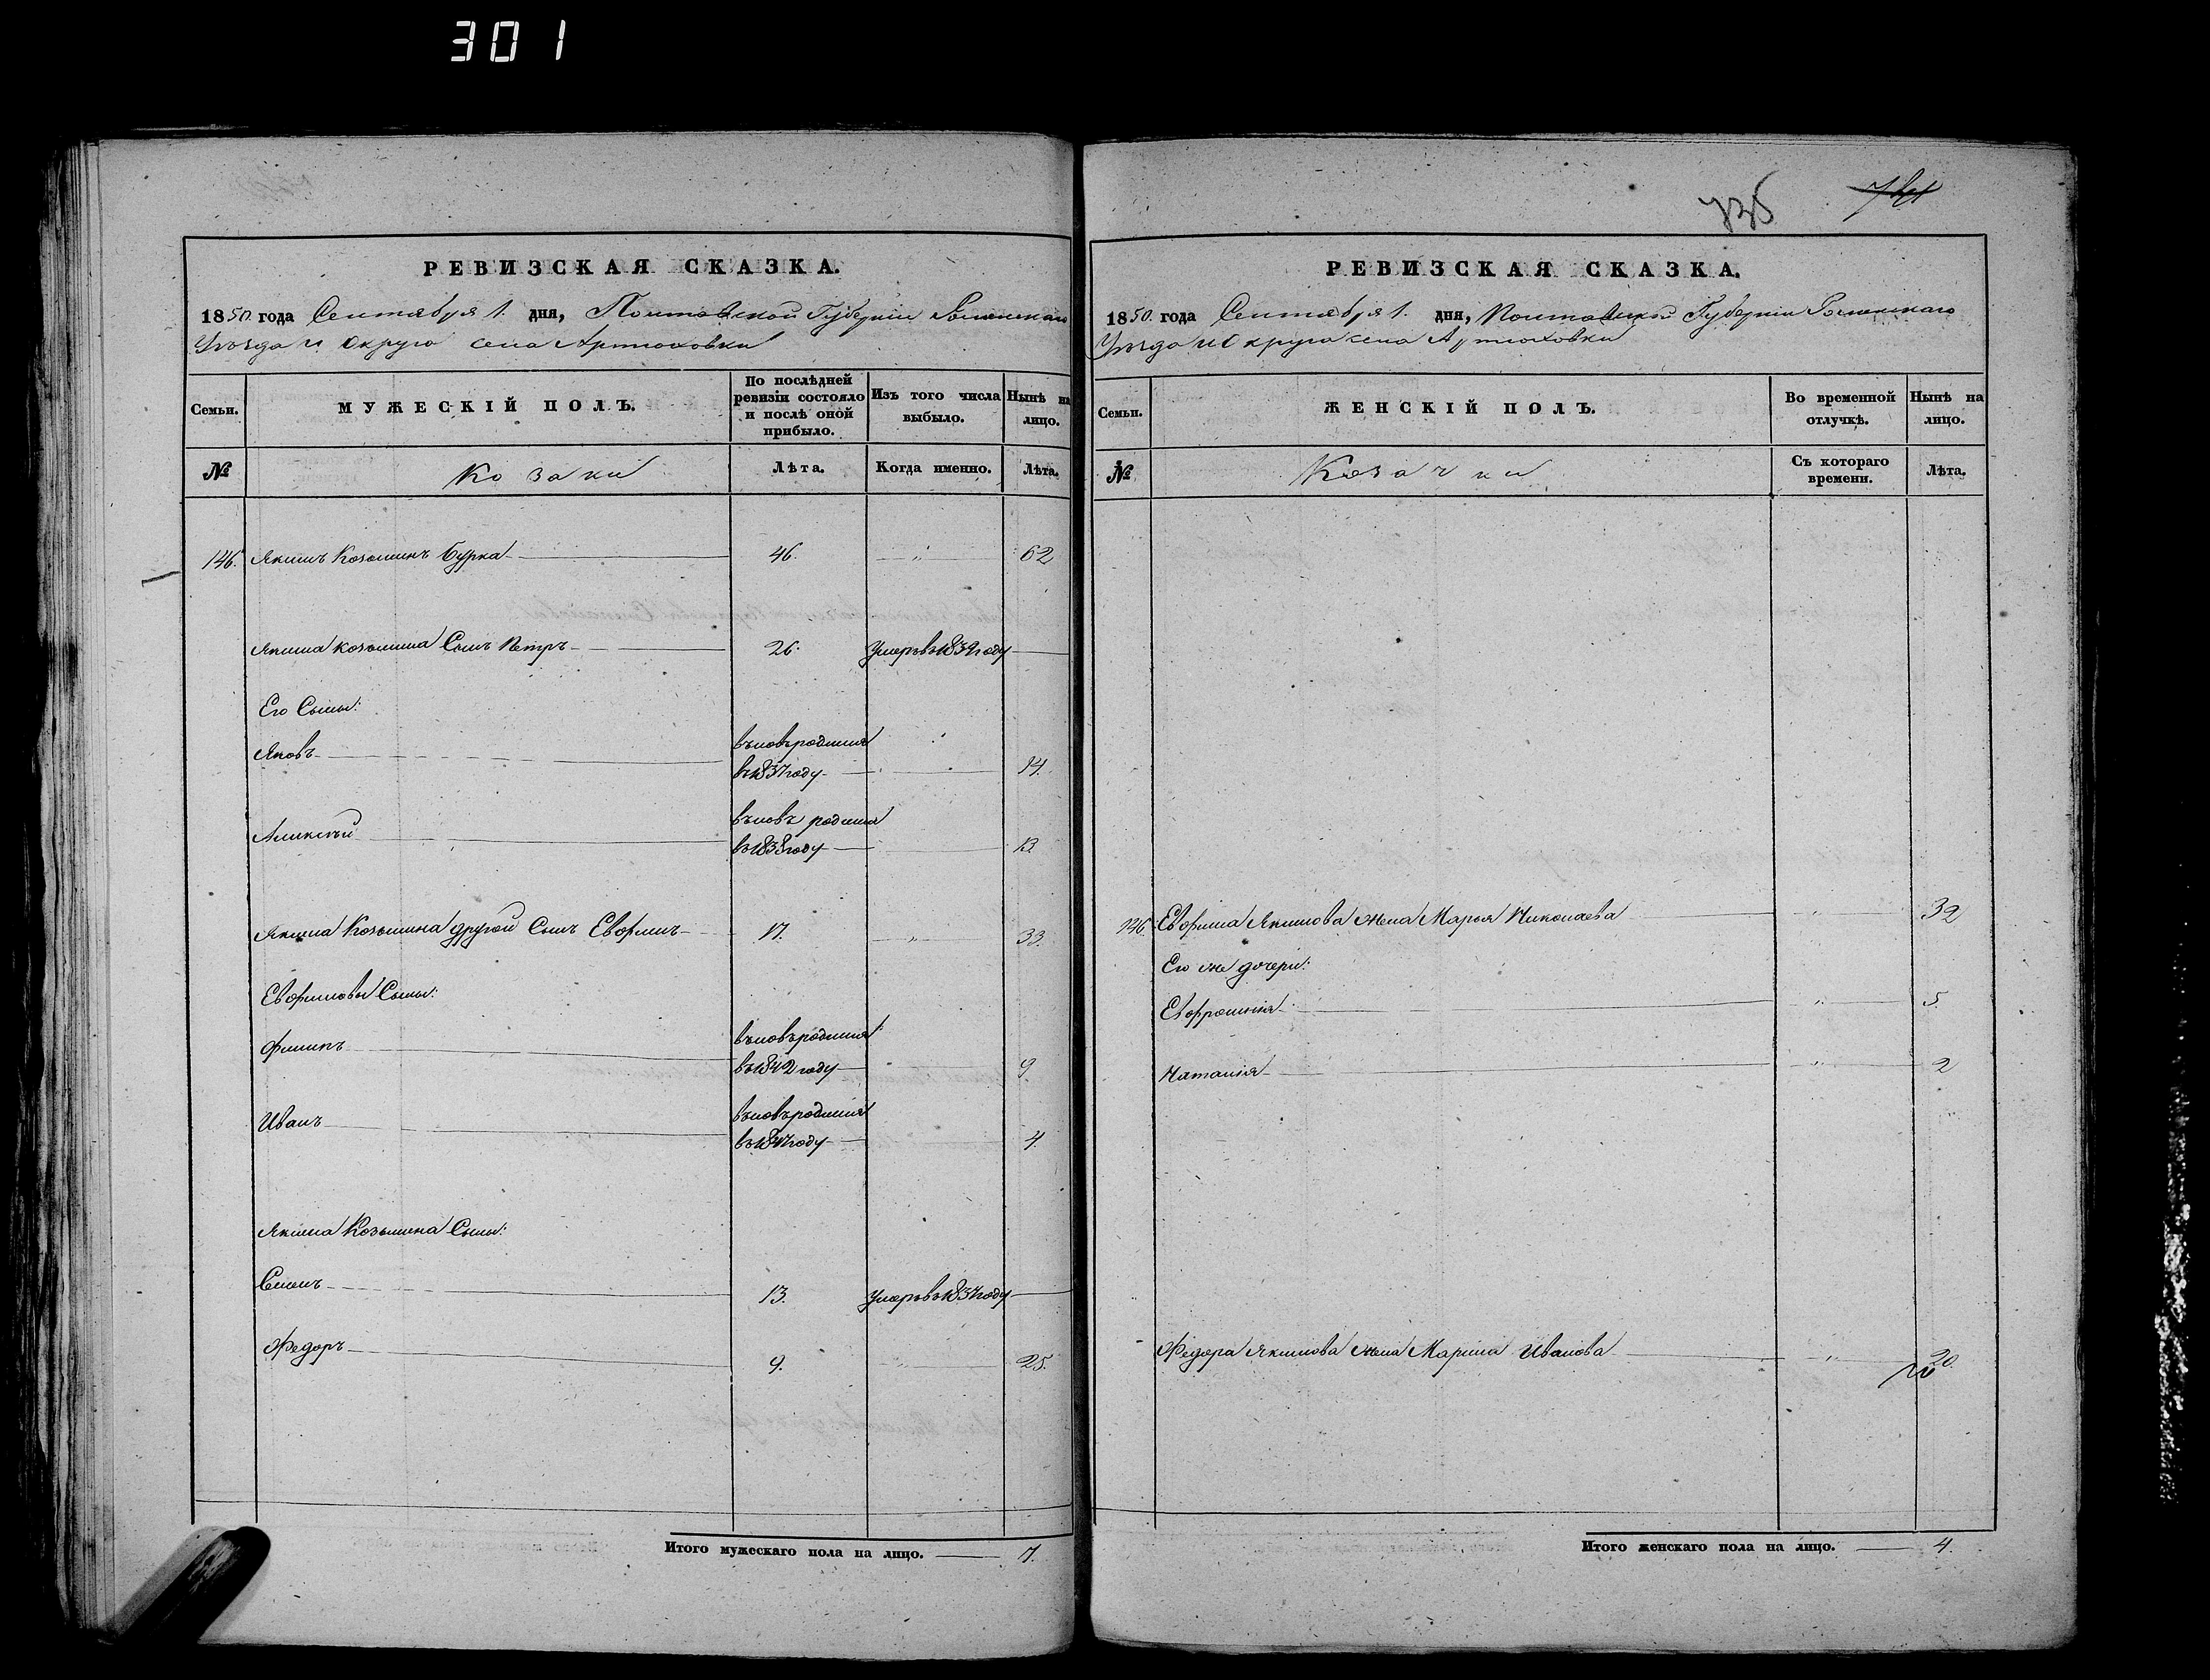 301
735
РЕВИЗСКАЯ СКАЗКА.
1850 года Сентября 1. дня, Полтавской Губерніи Роменскаго
Уѣзда и Округа села Артюховки
Семьи.
МУЖЕСКІЙ ПОЛЪ.
По послѣдней ревизіи состояло и послѣ оной прибыло.
Изъ того числа выбыло.
Нынѣ на лицо.
№
Козаки
Лѣта.
Когда именно.
Лѣта.
146. Якимъ Козьминъ Бурка 46. " 62
Якима Козьмина Сынъ Петръ 26. Умеръ въ 1839 году
Его Сыны:
Яковъ вновь родился
въ 1837 году 14.
Алексѣй вновь родился
въ 1838 году 13
Якима Козьмина другой Сынъ Евфимъ 17. " 33.
Евфимовы Сыны:
Филипъ вновь родился
въ 1842 году 9.
Иванъ вновь родился
въ 1847 году 4.
Якима Козьмина Сыны:
Семенъ 13. Умеръ въ 1837 году
Федоръ 9. " 25.
Итого мужескаго пола на лицо. 7.
РЕВИЗСКАЯ СКАЗКА.
1850 года Сентября 1. дня, Полтавской Губерніи Роменскаго
Уѣзда и Округа села Артюховки
Семьи.
ЖЕНСКІЙ ПОЛЪ.
Во временной отлучкѣ.
Нынѣ на лицо.
№
Козачки
Съ котораго времени.
Лѣта.
146. Евфима Якимова жена Марья Николаева " 32
Его же дочери:
Евфросинія " 5
Наталія " 2
Федора Якимова жена Марина Иванова " 20.
Итого женскаго пола на лицо. 4.